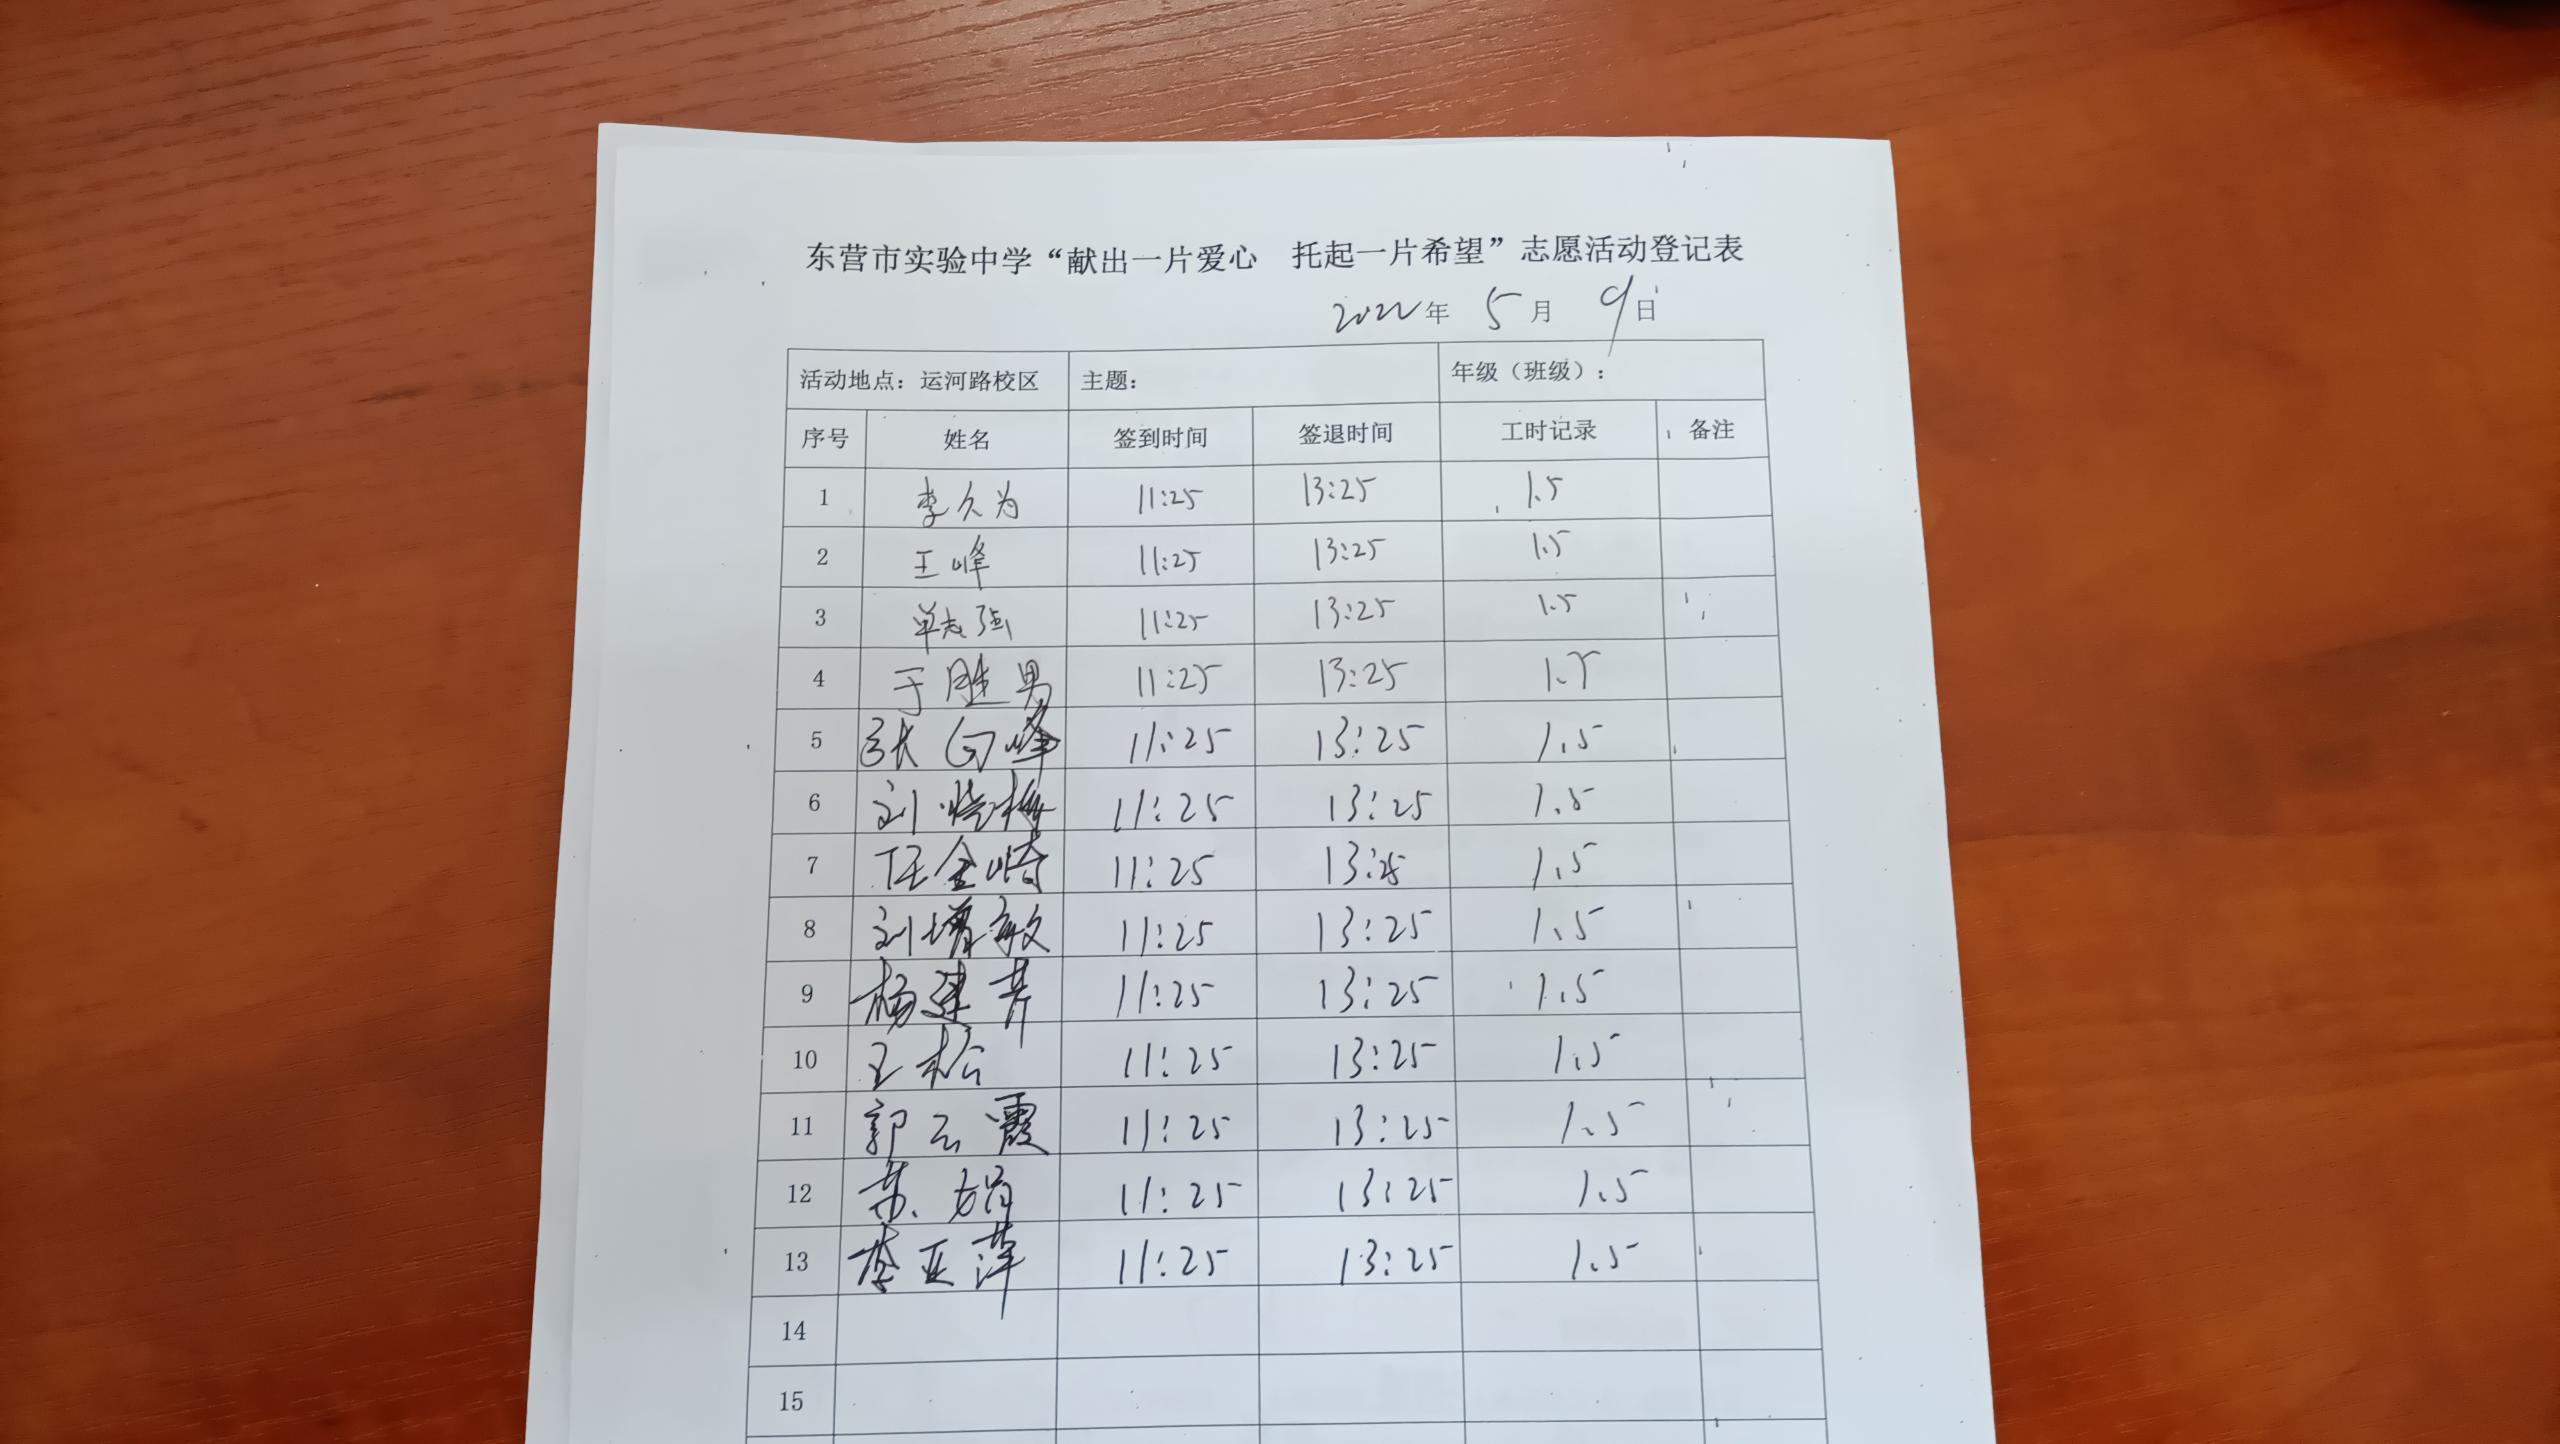 东营市实验中学“献出一片爱心 托起一片希望”志愿活动登记表
2022年 5月 9日
活动地点：运河路校区 主题： 年级（班级）：
序号 姓名 签到时间 签退时间 工时记录 备注
1 李久为 11:25 13:25 1.5
2 王峰 11:25 13:25 1.5
3 单志强 11:25 13:25 1.5
4 于胜男 11:25 13:25 1.5
5 张向峰 11:25 13:25 1.5
6 刘晓梅 11:25 13:25 1.5
7 任金崎 11:25 13:25 1.5
8 刘增敏 11:25 13:25 1.5
9 杨建 11:25 13:25 1.5
10 王松 11:25 13:25 1.5
11 郭云霞 11:25 13:25 1.5
12 娟 11:25 13:25 1.5
13 李亚萍 11:25 13:25 1.5
14
15